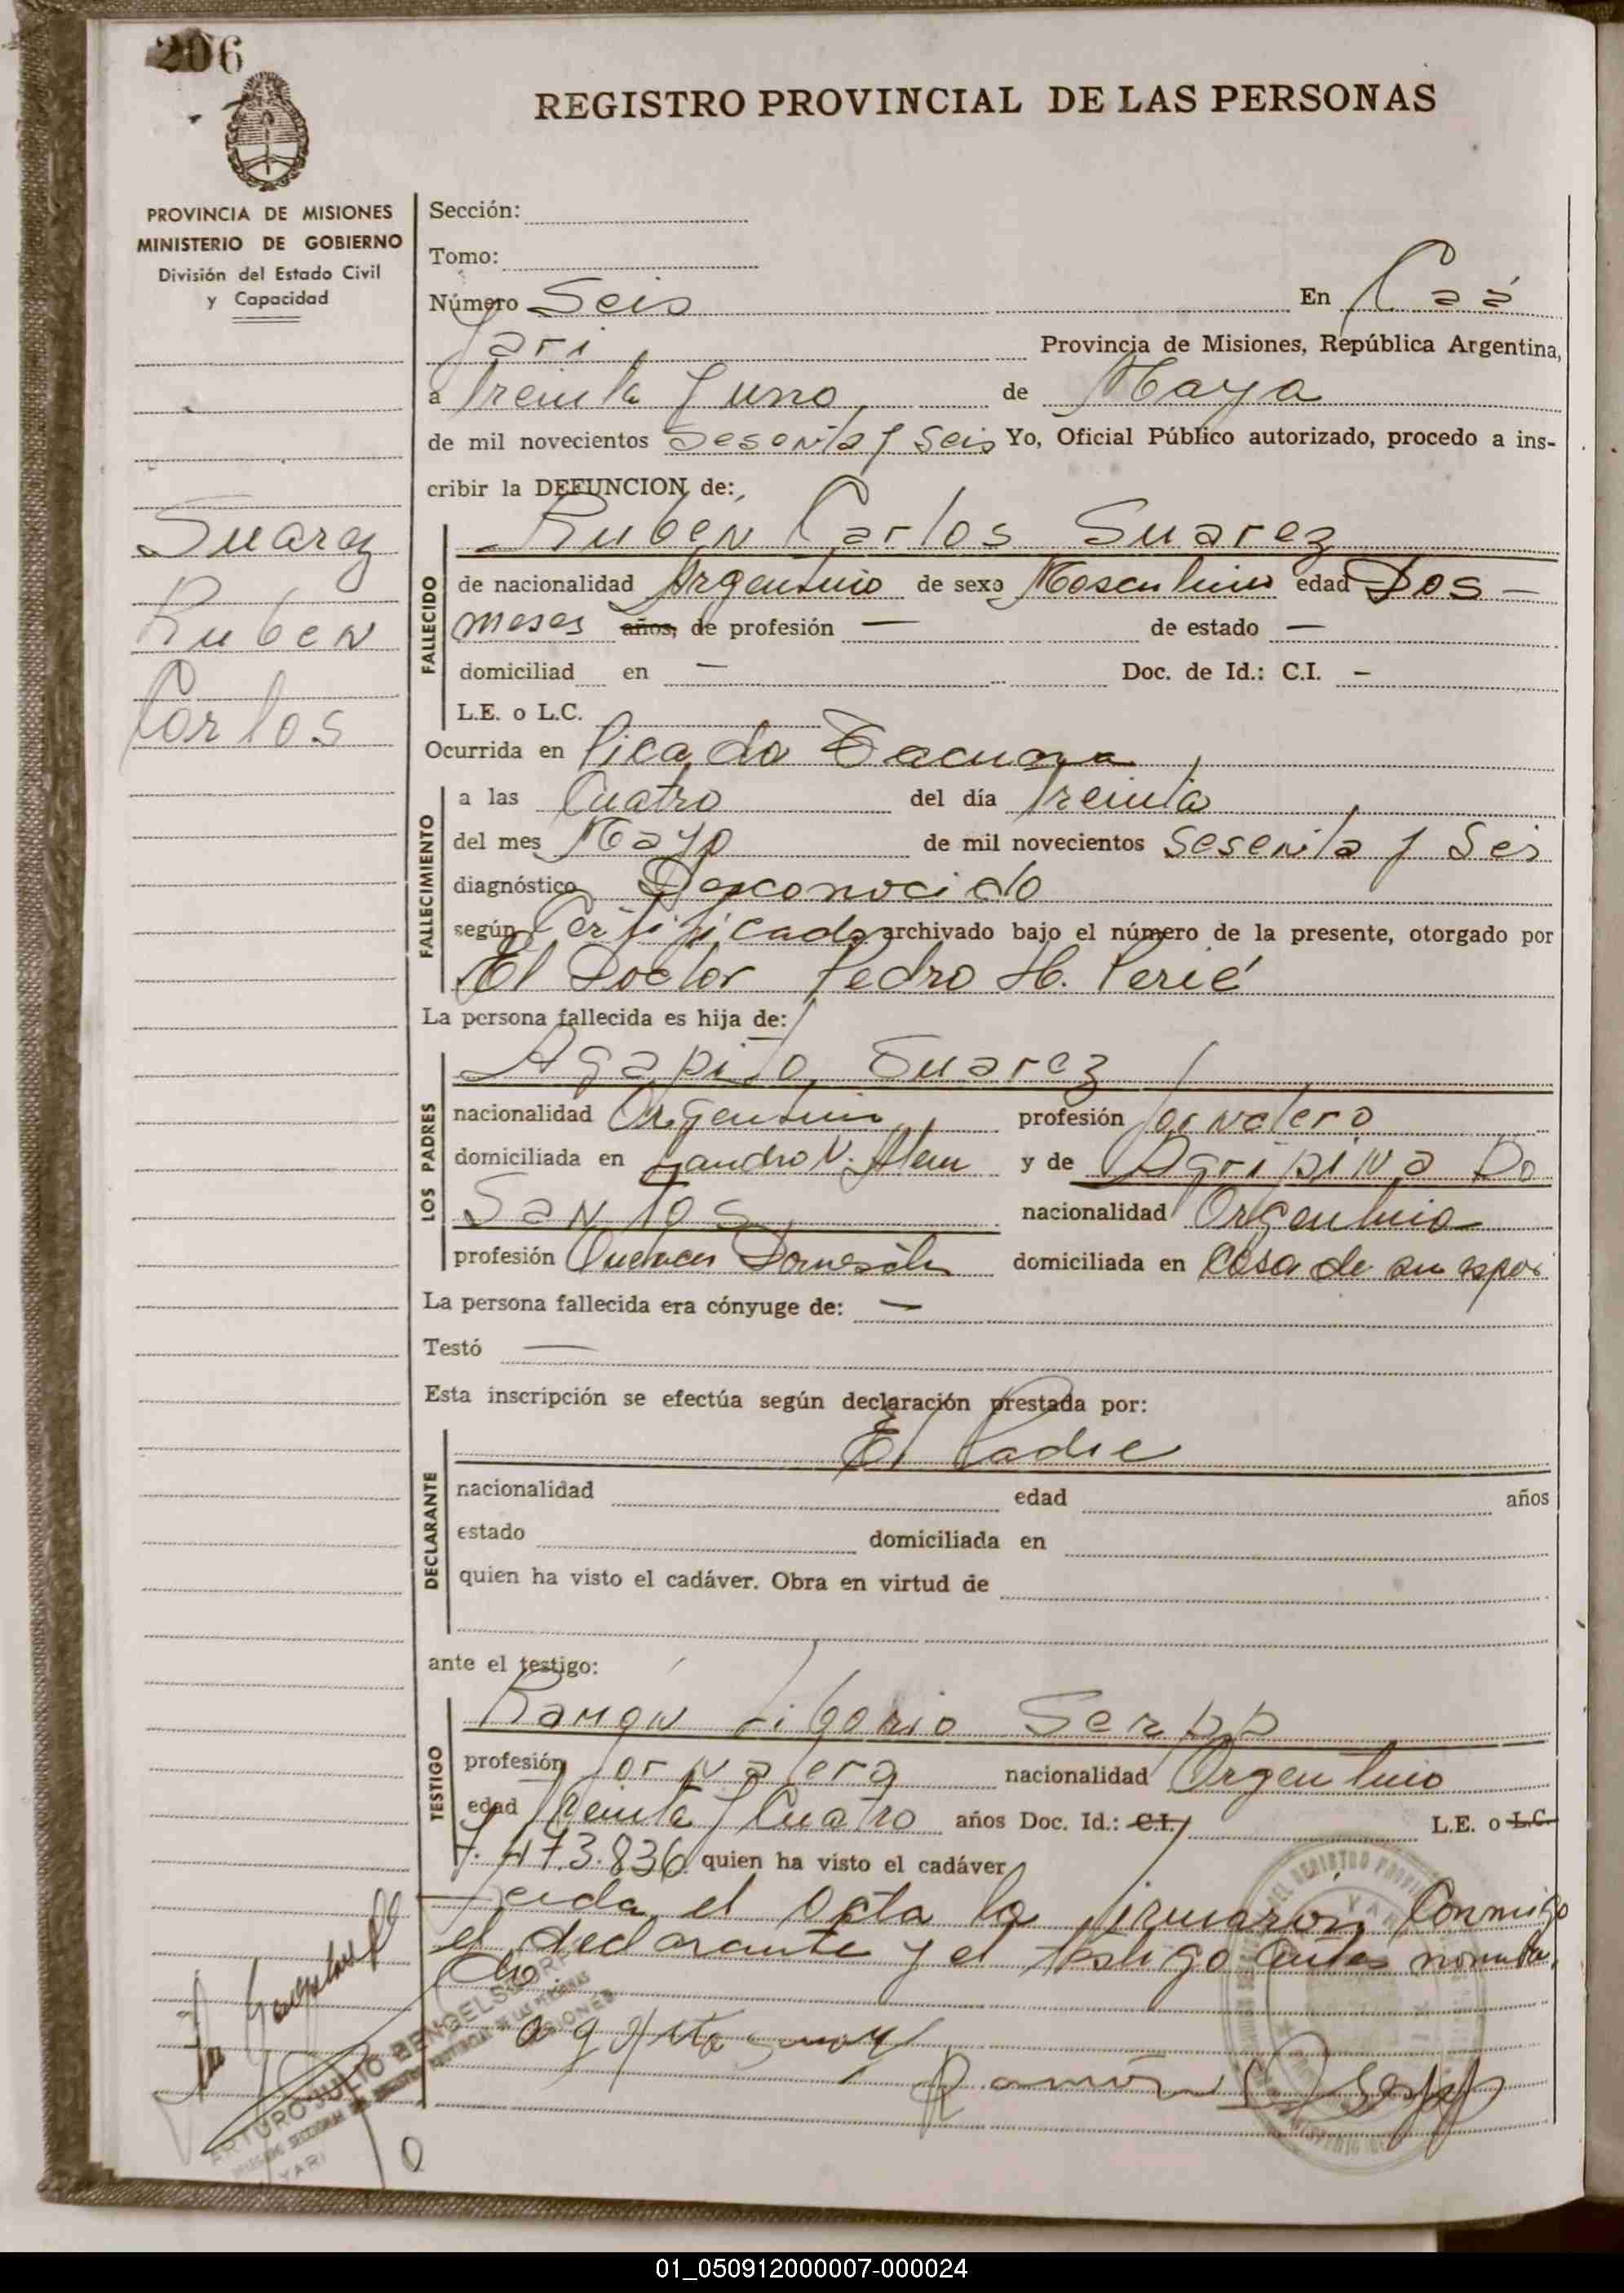 206
REGISTRO PROVINCIAL DE LAS PERSONAS
PROVINCIA DE MISIONES
MINISTERIO DE GOBIERNO
División del Estado Civil
y Capacidad
Suarez
Ruben
Carlos
Sección:
Tomo:
Número Seis En Caá
Yari Provincia de Misiones, República Argentina,
a Treinta y uno de Mayo
de mil novecientos Sesenta y Seis Yo, Oficial Público autorizado, procedo a ins-
cribir la DEFUNCION de:
Ruben Carlos Suarez
FALLECIDO
de nacionalidad Argentino de sexo Masculino edad Dos —
meses años, de profesión — de estado —
domiciliad en — Doc. de Id.: C.I. —
L.E. o L.C.
Ocurrida en Picada Tacuara
FALLECIMIENTO
a las Cuatro del día Treinta
del mes Mayo de mil novecientos Sesenta y Seis
diagnóstico Desconocido
según Certificado archivado bajo el número de la presente, otorgado por
El Doctor Pedro H. Perié
La persona fallecida es hija de:
LOS PADRES
Agapito Suarez
nacionalidad Argentino profesión Jornalero
domiciliada en Leandro N. Alem y de Agripina Do
Santos nacionalidad Argentina
profesión Quehacer Domesticos domiciliada en Casa de su espos
La persona fallecida era cónyuge de: —
Testó —
Esta inscripción se efectúa según declaración prestada por:
El Padre
DECLARANTE
nacionalidad edad años
estado domiciliada en
quien ha visto el cadáver. Obra en virtud de
ante el testigo:
TESTIGO
Ramón Liborio Serpp
profesión Jornalero nacionalidad Argentino
edad Treinta y Cuatro años Doc. Id.: C.I. L.E. o L.C.
7.473.836 quien ha visto el cadáver
Leida el acta la firmaron Conmigo
el declarante y el testigo antes nombra
do.
ARTURO JULIO BENGELSDORF
YARI
01_050912000007-000024